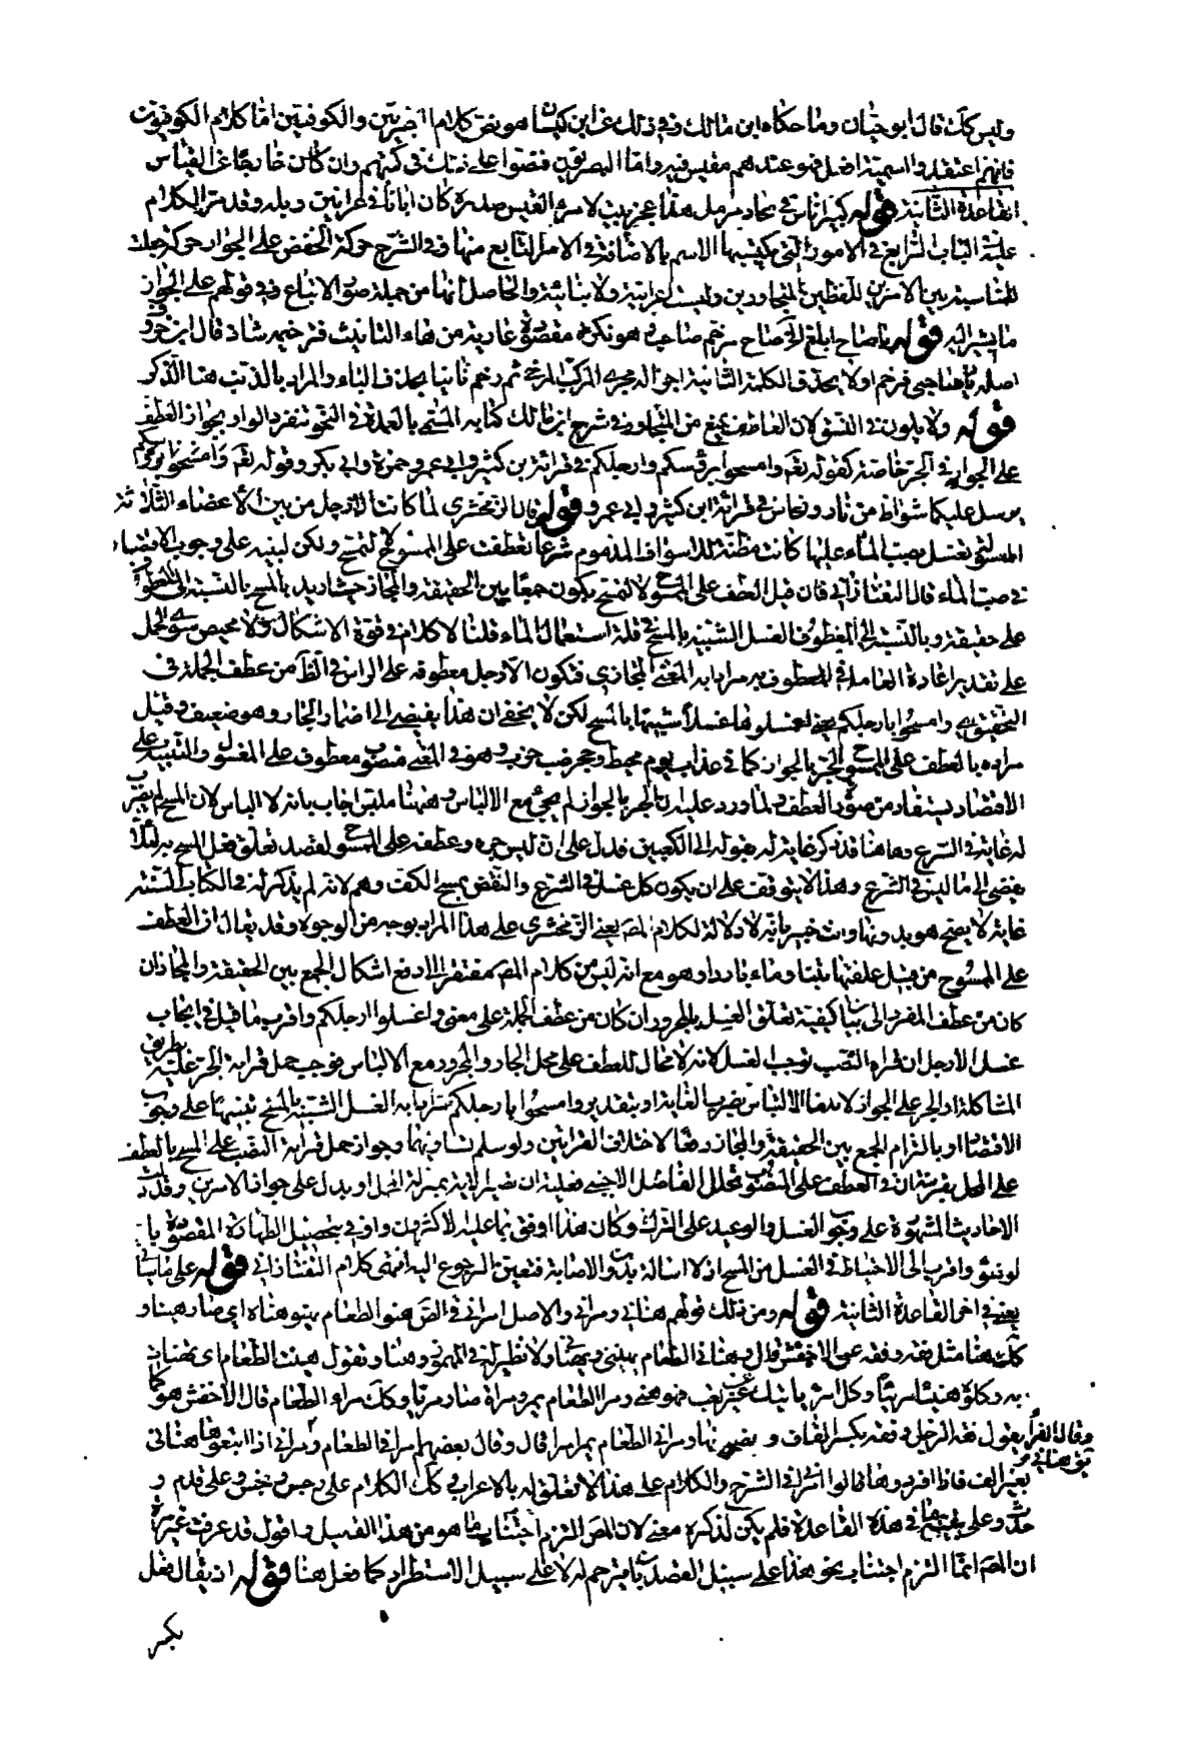 وليس كك قال ابو حيان وما حكاه ابن مالك في ذلك عن ابن كيسان هو نص كلام البصريين والكوفيين اما كلام الكوفيين
فانهم اعتقدوا اسمية افعل فهو عندهم مقيس فيه واما البصريون فنصوا على ذلك في كتبهم وان كان خارجا عن القياس
القاعدة الثانية قوله كبير اناس في بجاد مزمل هذا عجز بيت لامرئ القيس صدره كان ابانا في عرانين وبله وقد مر الكلام
عليه في الباب الرابع في الامور التي يكتسبها الاسم بالاضافة في الامر التابع منها وفي الشرح حركة الخفض على الجوار حركة جلبت
للمناسبة بين الاخرين للفظين المتجاورين وليست اعرابية ولا بنائية والحاصل انها من جملة صور الاتباع وقولهم على الجوار
ما يشير اليه قوله يا صاح ابلغ الخ صاح مرخم صاحب وهو نكرة مقصودة عارية من هاء التانيث فترخيمه شاذ قال ابن خروف
اصله يا صاحبي فرخم اولا بحذف الكلمة الثانية اجراء له مجرى المركب المزجي ثم رخم ثانيا بحذف الباء والمراد بالذنب هنا الذكر
قوله ولا يكون في النسق لان العاطف يمنع من التجاور وفي شرح ابن مالك كتابه المسمى بالعمدة في النحو تنفرد الواو بجواز العطف
على الجوار في الجر خاصة كقوله تعم وامسحوا برؤسكم وارجلكم في قرائة ابن كثير وابي عمرو وحمزة وابي بكر وقوله تعم وامسحوا برؤسكم
يرسل عليكما شواظ من نار ونحاس في قرائة ابن كثير وابي عمرو قوله قال الزمخشري لما كانت الارجل من بين الاعضاء الثلاثة
المستى تغسل بصب الماء عليها كانت مظنة للاسراف المذموم شرعا فعطفت على الممسوح لا لتمسح ولكن لينبه على وجوب الاقتصاد
في صب الماء قال التفتازاني فان قيل العطف على الممسوح لا لتمسح يكون جمعا بين الحقيقة والمجاز حيث اريد بالمسح بالنسبة الى المعطوف
على حقيقته وبالنسبة الى المعطوف الغسل الشبيه بالمسح في قلة استعمال الماء قلنا لا كلام في قوة الاشكال ولا محيص سوى الحمل
على تقدير اعادة العامل في المعطوف مرادا به المعنى المجازي فتكون الارجل معطوفة على الراس في الظ من عطف الجملة في
التحقيق اي وامسحوا بارجلكم يعني اغسلوها غسلا شبيها بالمسح لكن لا يخفى ان هذا يفضي الى اضمار الجار وهو ضعيف وقيل
مراده بالعطف على الممسوح الجر بالجوار كما في عذاب يوم محيط وجحر ضب خرب وهو في المعنى منصوب معطوف على المغسول والتنبيه على
الاقتصاد يستفاد من صورة العطف ولما ورد عليه ان الجر بالجوار لم يجئ مع الالباس وههنا ملتبس اجاب بانه لا الباس لان المسح لم يضرب
له غاية في الشرع وهاهنا قد ذكر غاية له بقوله الى الكعبين فدل على انه ليس جره وعطفه على الممسوح لقصد تعلق فعل المسح به لئلا
يفضي الى ما ليس في الشرع وهذا لا يتوقف على ان يكون كل غسل في الشرع والنقض بمسح الكف وهم لانه لم يذكر له في الكتاب والسنة
غاية لا يصح هو بدونها وانت خبير بانه لا دلالة لكلام المص يعني الزمخشري على هذا المراد بوجه من الوجوه وقد يقال ان العطف
على الممسوح من قبيل علفتها تبنا وماء باردا وهو مع انه ليس من كلام المص مفتقر الى دفع اشكال الجمع بين الحقيقة والمجاز ان
كان من عطف المفرد الى بيان كيفية تعلق الغسل بالمجرور ان كان من عطف الجملة على معنى واغسلوا ارجلكم واقرب ما قيل في ايجاب
غسل الارجل ان قراءة النصب توجب الغسل لانه لا مجال للعطف على محل الجار والمجرور مع الالباس فوجب حمل قراءة الجر عليه بطريق
المشاكلة او الجر على الجوار لاندفاع الالتباس بضرب الغاية او بتقدير وامسحوا بارجلكم مرادا به الغسل الشبيه بالمسح تنبيها على وجوب
الاقتصاد او بالتزام الجمع بين الحقيقة والمجاز دفعا لاختلاف القراءتين ولو سلم تساويهما وجواز حمل قراءة النصب على المسح بالعطف
على المحل بقرينة ان في العطف على المنصوب تخلل الفاصل الاجنبي فغايته ان تصير الاية بمنزلة المجمل او يدل على جواز الامرين وقد دلت
الاحاديث المشهورة على وجوب الغسل والوعيد على الترك وكان هذا اوفق بما عليه الاكثرون واوفى بتحصيل الطهارة المقصودة با
لوضوء واقرب الى الاحتياط في الغسل من المسح اذ لا اسالة بدون الاصابة فتعين الرجوع اليه انتهى كلام التفتازاني قوله على ما ياتي
يعني في اخر القاعدة الثانية قوله ومن ذلك قولهم هنأني ومرأني والاصل امرأني في الص هنؤ الطعام يهنؤ هناءة اي صار هنيئا و
كك هنئ مثل فقه وفقه عن الاخفش قال وهنأني الطعام يهنئني ويهنأني ولا نظير له في المهموز وهنأ وتقول هنئت الطعام اي تهنأت
به وكلوه هنيئا مريئا وكل امر ياتيك بغير تعب فهو هنئ ومرأ الطعام يمرؤ مراءة صار مريا وكك مرئ الطعام قال الاخفش هو كما
وقال الفراء يقول فقه الرجل وفقه بكسر القاف وضمها ومرأني الطعام يمرأ مرأ قال وقال بعضهم امرأني الطعام ومرأني اذا اتبعوها هنأني
بغير الف فاذا افردوها قالوا امرأني وفي الشرح والكلام على هذا لا تعلق له بالاعراب وكك الكلام على رجس ونجس وعلى قدم و
حدث وعلى في هذه القاعدة فلم يكن لذكره معنى لان المص التزم اجتناب ما هو من هذا القبيل واقول قد عرفت غير مرة
ان المص انما التزم اجتناب نحو هذا على سبيل القصد بباب مترجم له لا على سبيل الاستطراد كما فعل هنا قوله اذ يقال فعل
بكسر